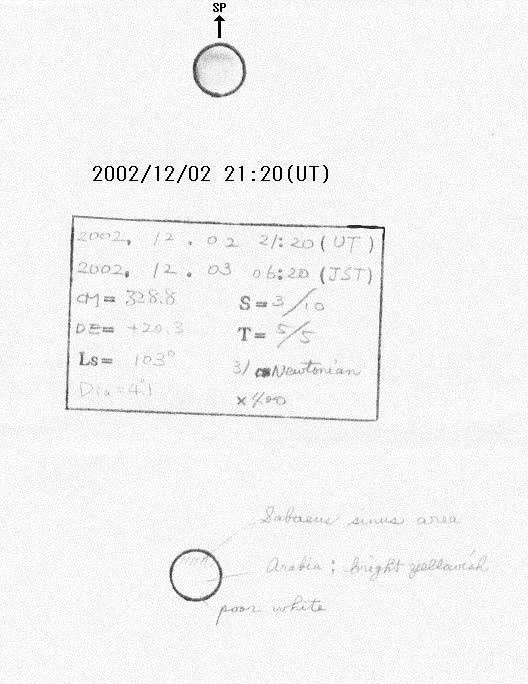 SP
2002/12/02 21:20(UT)
2002, 12. 02 21:20 (UT)
2002, 12. 03 06:20 (JST)
CM= 328.8 S= 3/10
DE= +20.3 T= 5/5
Ls= 103° 31 Newtonian
Dia=4."1 ×400
Sabaeus sinus area
Arabia; bright yellowish
poor white